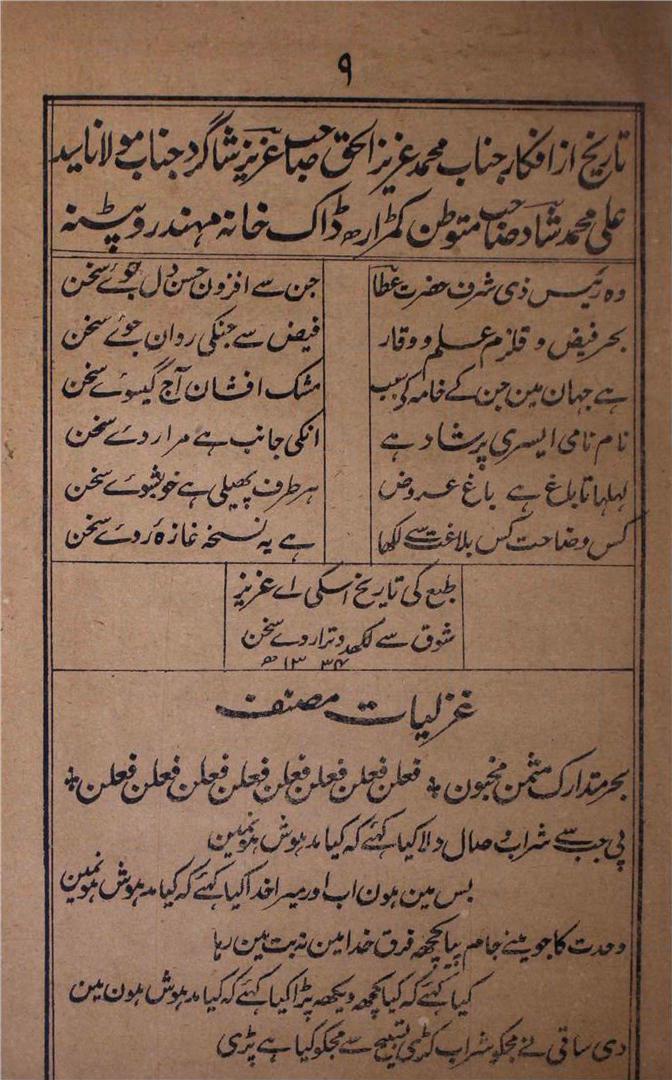 ۹
تاریخ از افکار جناب محمد عزیز الحق صاحب عزیز شاگرد جناب مولانا سید
علی محمد شاد صاحب متوطن کمڑارہ ڈاک خانہ مہندرو پٹنہ
وہ رئیس ذی شرف حضرت عطا
جن سے افزون حسن دل جوئے سخن
بحر فیض و قلزم علم و وقار
فیض سے جنکی روان جوئے سخن
ہے جہان مین جن کے خامہ کے سبب
مشک افشان آج گیسوئے سخن
نام نامی ایسری پرشاد ہے
انکی جانب ہے مرا روے سخن
لہلہاتا باغ ہے باغ عروض
ہر طرف پھیلی ہے خوشبوے سخن
کس وضاحت کس بلاغت سے لکھا
ہے یہ نسخہ غازہ روے سخن
طبع کی تاریخ اسکی اے عزیز
شوق سے لکھدو ترازوے سخن
۱۳۳۴ھ
غزلیات مصنف
بحر متدارک مثمن مخبون + فعلن فعلن فعلن فعلن فعلن فعلن فعلن فعلن +
پی جب سے شراب وصال دلا کیا کہئے کہ کیا مدہوش ہونمین
بس مین ہون اب اور میرا خدا کیا کہئے کہ کیا مدہوش ہونمین
وحدت کا جو مینے جام پیا کچھ فرق خدا مین نہ بت مین رہا
کیا کہئے کہ کیا کچھ دیکھ پڑا کیا کہئے کہ کیا مدہوش ہون مین
دی ساقی نے مجکو شراب کڑی تسبیح سے مجکو کیا ہے پڑی